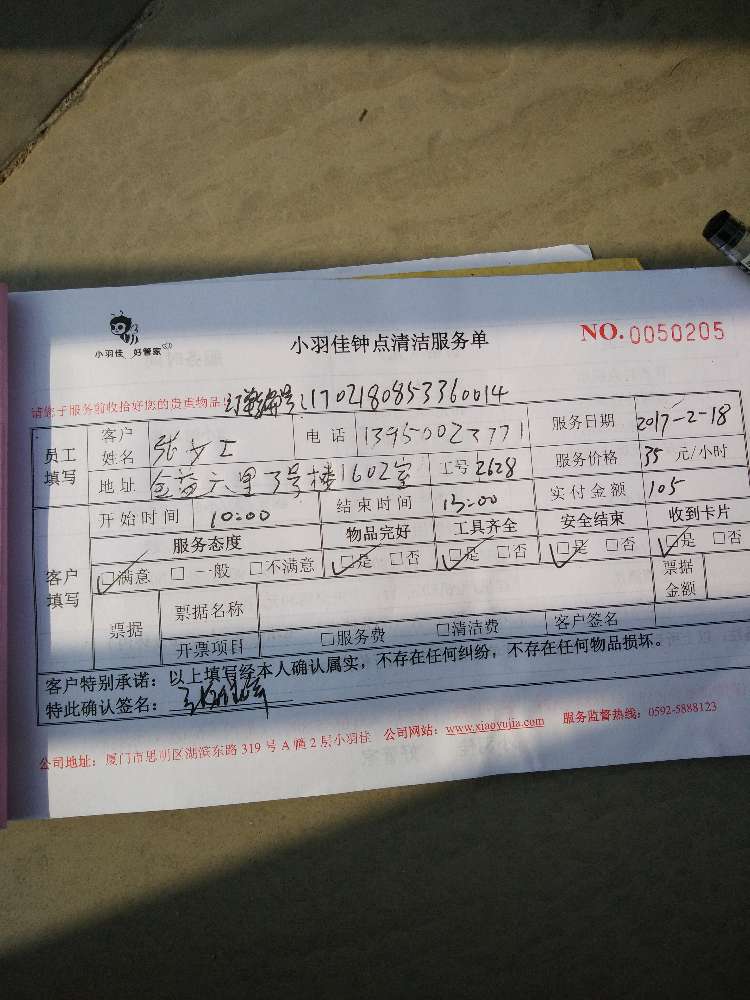 小羽佳 好管家
小羽佳钟点清洁服务单
NO. 0050205
请您于服务前收拾好您的贵重物品 订单编号 170218085336 0014
员工填写 客户姓名 张女士 电话 13950023771 服务日期 2017-2-18
地址 金益六里3号楼1602室 工号 2628 服务价格 35 元/小时
客户填写 开始时间 10:00 结束时间 13:00 实付金额 105
服务态度 物品完好 工具齐全 安全结束 收到卡片
☑满意 □一般 □不满意 ☑是 □否 ☑是 □否 ☑是 □否 ☑是 □否
票据 票据名称 票据金额
开票项目 □服务费 □清洁费 客户签名
客户特别承诺：以上填写经本人确认属实，不存在任何纠纷，不存在任何物品损坏。
特此确认签名：
公司地址：厦门市思明区湖滨东路 319 号 A 幢 2 层小羽佳 公司网站：www.xiaoyujia.com 服务监督热线：0592-5888123